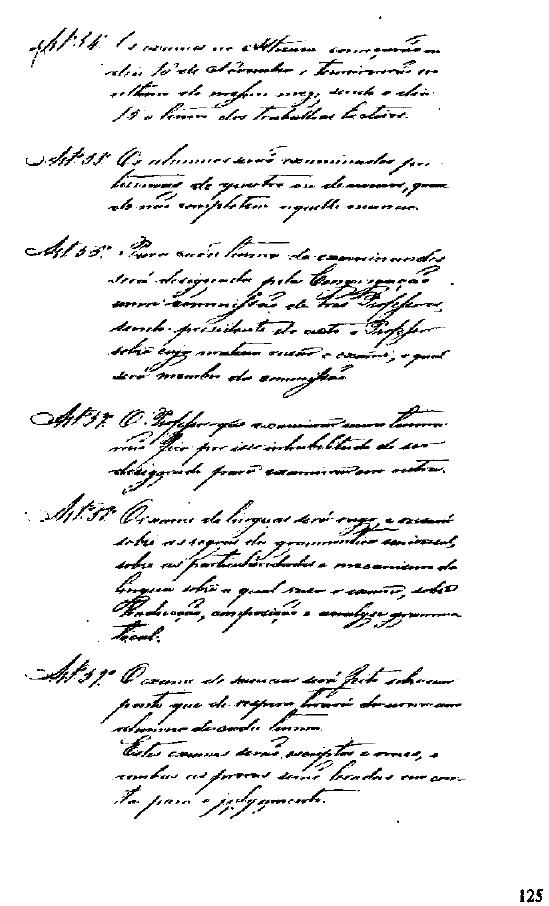 Art. 54. Os exames no Atheneu começarão no
dia 16 de Novembro e terminarão no
ultimo do mesmo mez, sendo o dia
15 o termo dos trabalhos lectivos.
Art. 55. Os alumnos serão examinados por
turmas de quatro ou de menos, quan
do não completem aquelle numero.
Art. 56. Para cada turma de examinandos
será designada pela Congregação
uma commissão de tres Professores,
sendo presidente do acto o Professor
sobre cuja materia versar o exame, o qual
será membro da commissão
Art. 57. O Professor que examinar uma turma
não fica por isso inhabilitado de ser
designado para examinar em outra.
Art. 58. O exame de linguas será vago, e versará
sobre as regras da grammatica universal,
sobre as particularidades e mecanismo da
lingua sobre a qual versar o exame, sobre
traducção, composição e analyse gramma
tical.
Art. 59. O exame de sciencias será feito sobre um
ponto que de vespera tirará da urna um
alumno de cada turma.
Estes exames serão escriptos e oraes, e
ambas as provas serão levadas em con-
ta para o julgamento.
125